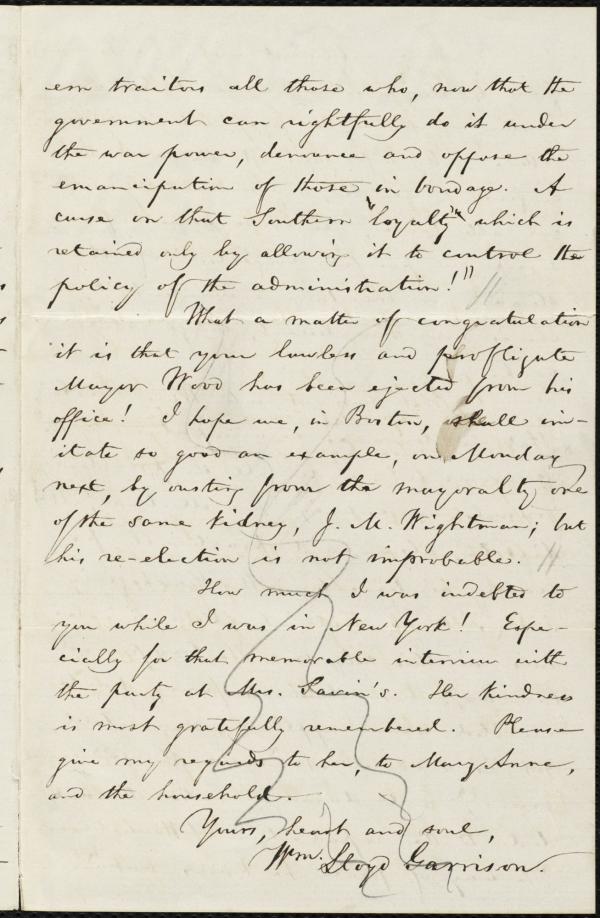 ern traitors all those who, now that the
government can rightfully do it under
the war power, denounce and oppose the
emancipation of those in bondage. A
curse on that Southern "loyalty" which is
retained only by allowing it to control the
policy of the administration!"
What a matter of congratulation
it is that your lawless and profligate
Mayor Wood has been ejected from his
office! I hope we, in Boston, shall im-
itate so good an example, on Monday
next, by ousting from the mayoralty one
of the same kidney, J. M. Wightman; but
his re-election is not improbable.
How much I was indebted to
you while I was in New York! Espe-
cially for that memorable interview with
the party at Mrs. Savin's. Her kindness
is most gratefully remembered. Please
give my regards to her, to Mary Anne,
and the household.
Yours, heart and soul,
Wm. Lloyd Garrison.